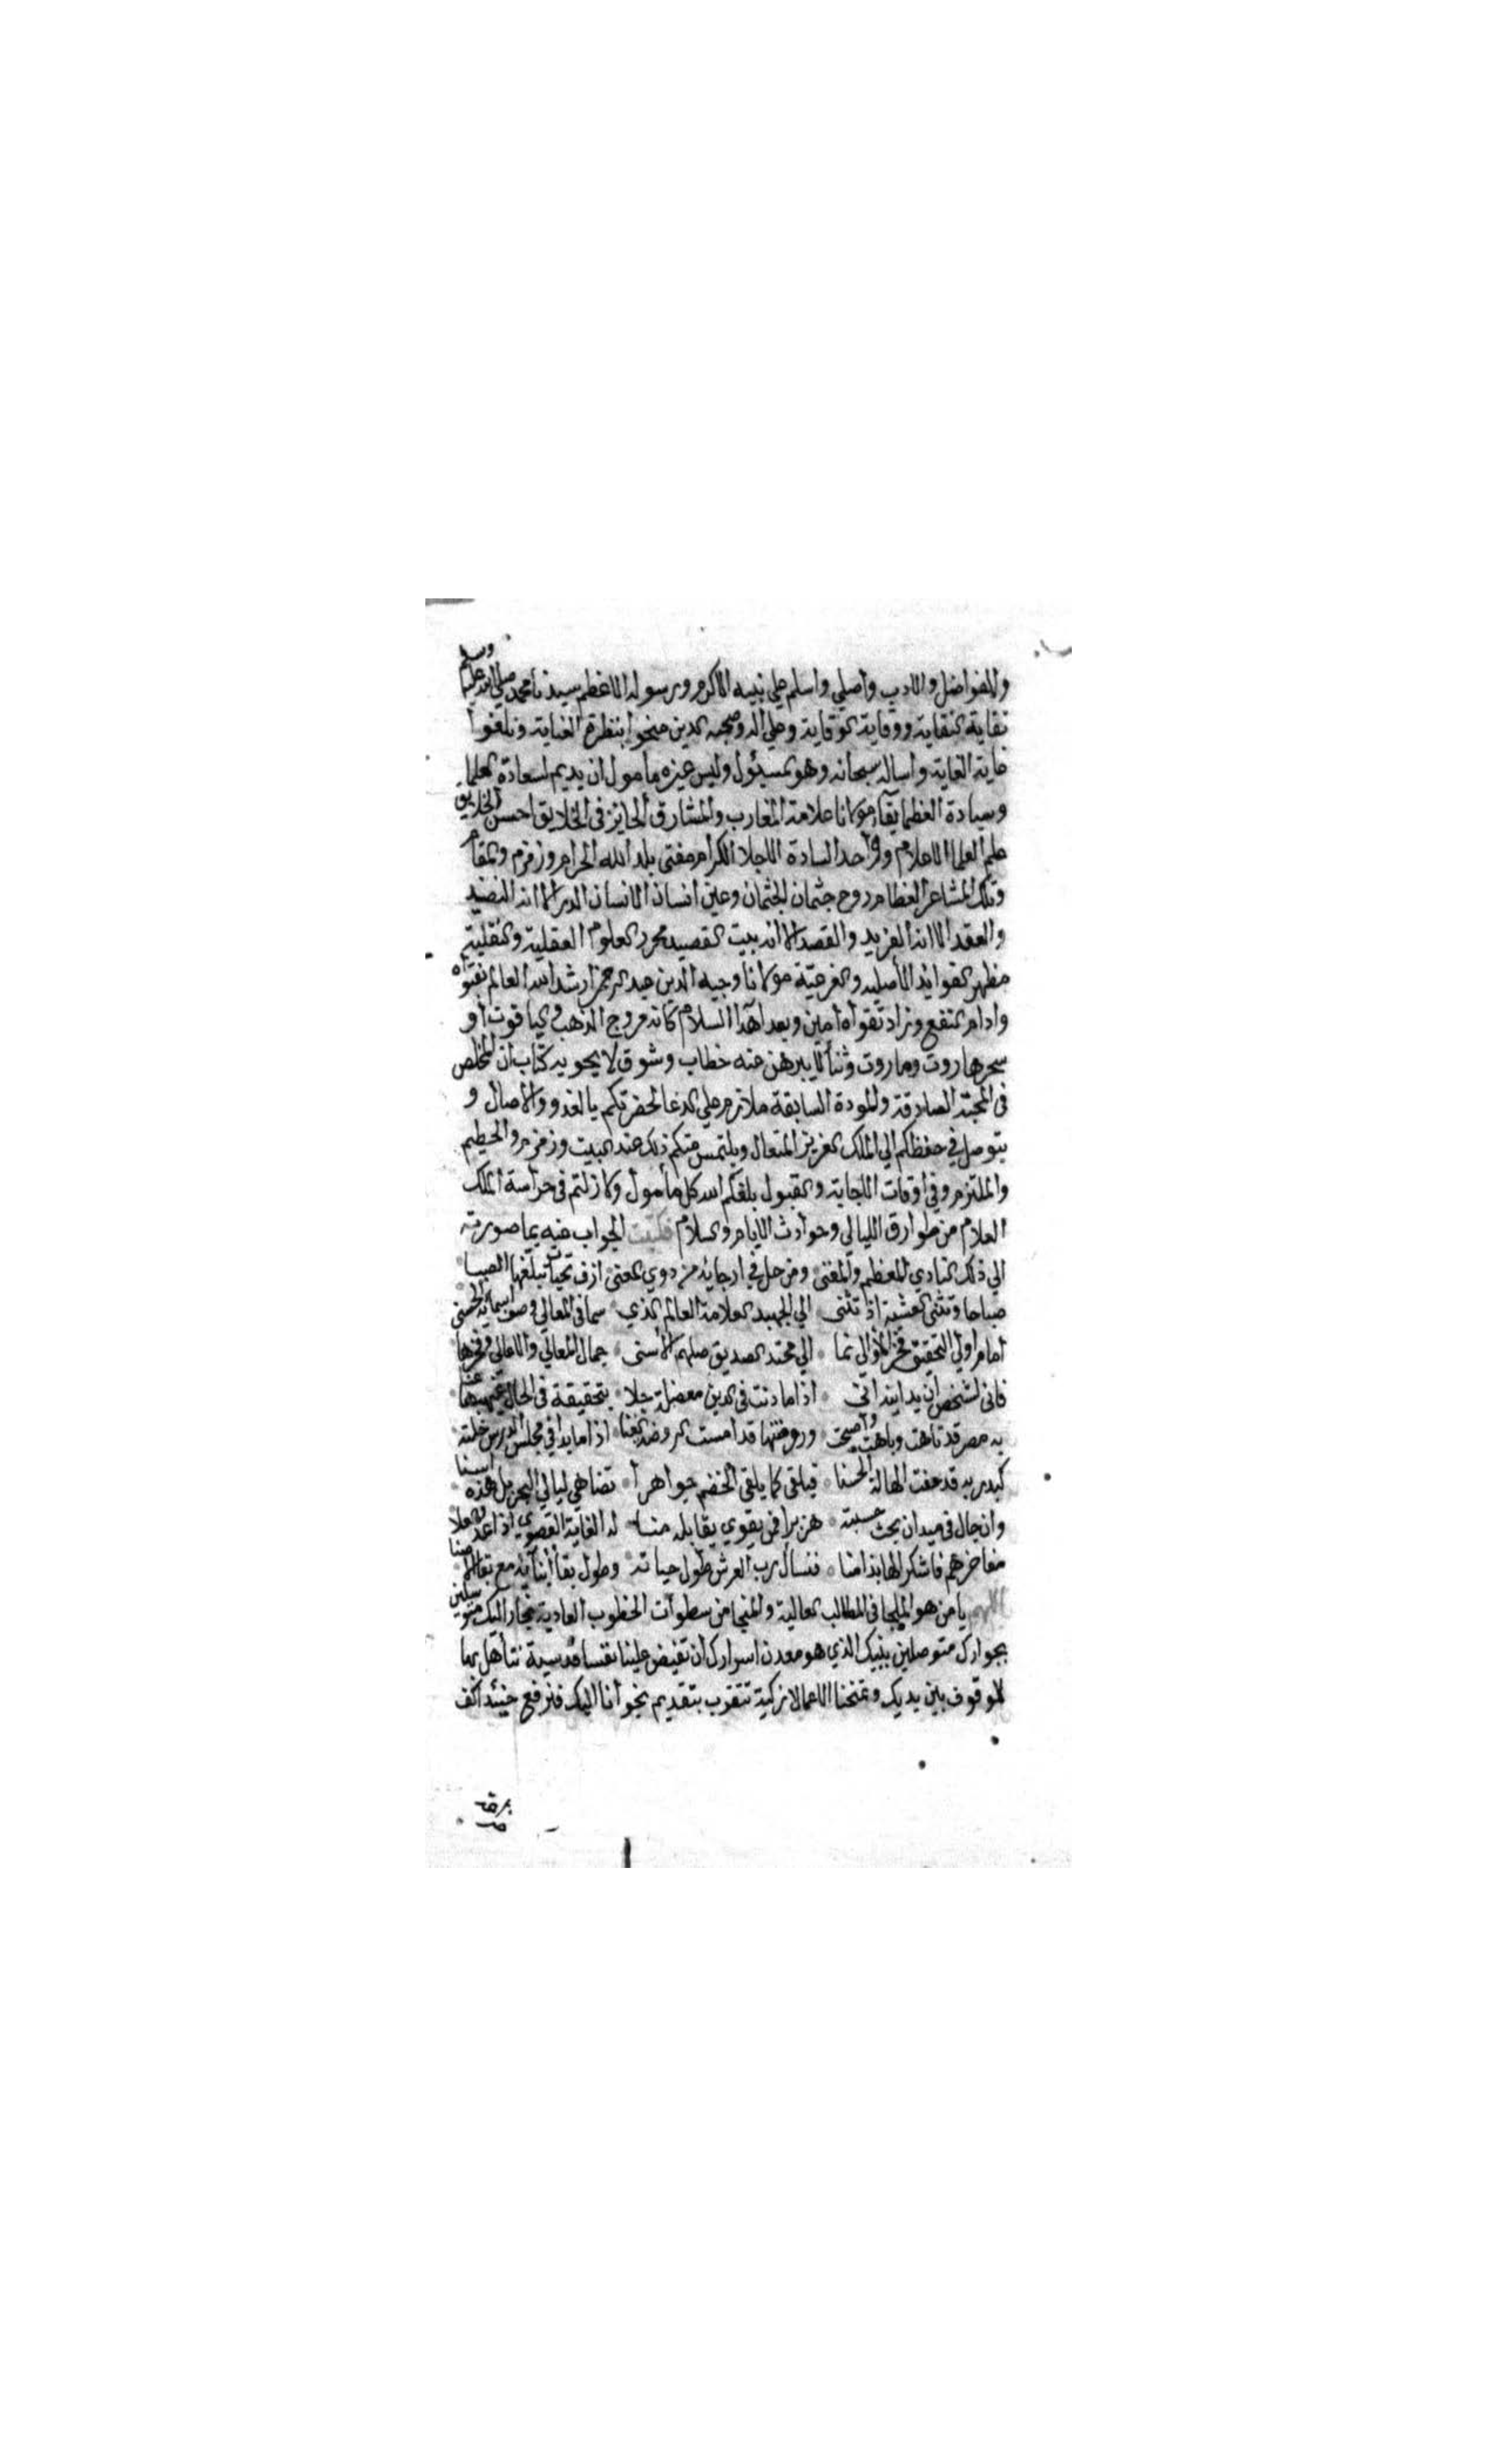 والفواضل والادب واصلي واسلم علي نبيه الاكرم ورسوله الاعظم سيدنا محمد صلي الله عليه وسلم
نقاية النقاية ووقاية الوقاية وعلي اله وصحبه الذين منحوا بنظرة العناية وبلغوا
غاية الغاية واساله سبحانه وهو المسئول وليس غيره مامول ان يديم لسعادة العلما
وسيادة العظما بقاء مولانا علامة المغارب والمشارق الحايز في الخلايق احسن الخلايق
علم العلما الاعلام واحد السادة الاجلا الكرام مفتي بلد الله الحرام وزمزم والمقام
وتلك المشاعر العظام روح جثمان الجثمان وعين انسان الانسان الدر الا انه النضيد
والعقد الا انه الفريد والقصد الا انه بيت القصيد محرر العلوم العقلية والنقلية
مظهر الفوايد الاصلية والفرعية مولانا وجيه الدين عبد الرحمن ارشد الله العالم بفتواه
وادام النفع وزاد تقواه امين وبعد اهدا السلام كانه مروج الذهب والياقوت او
سحر هاروت وماروت وثنا لا يبرهن عنه خطاب وشوق لا يحويه كتاب ان المخلص
في المحبة الصادقة والمودة السابقة ملازم علي الدعا لحضرتكم بالغدو والاصال و
يتوصل في حفظكم الي الملك العزيز المتعال ويلتمس منكم ذلك عند البيت وزمزم والحطيم
والملتزم وفي اوقات الاجابة والقبول بلغكم الله كل مأمول ولا زلتم في حراسة الملك
العلام من طوارق الليالي وحوادث الايام والسلام فكتبت الجواب عنه بما صورته
الي ذلك النادي المعظم والمغنى ومن حل في ارجائه من ذوي المعنى ازف تحيات تبلغها الصبا
صباحا وتثني العشية اذ تثنى الي الجهبد العلامة العالم الذي سما في المعالي اسمائه الحسنى
امام اولي التحقيق فخر الموالي نما الي محتد الصديق الاسنى جمال المعالي والاعالي وفخرها
فاني لشخص ان يدانيه اني اذا ما دنت في الدين معضلة جلا بتحقيقه في الحال غيهبها عنا
به مصر قد تاهت وباهت واصبحت وروضتها قد امست الروضة الغنا اذا ما بدا في مجلس الدرس خلته
كبدر به قد حفت الهالة الحسنا فيلقي كما يلقي الخضم جواهرا تضاهي ليالي البحر بل هذه اسنا
وان جال في ميدان بحث حسبته هزبرا فمن يقوي يقابله منا له الغاية القصوي اذا عد ذو علا
مفاخرهم فاشكر لها بذا منا فنسأل رب العرش طول حياته وطول بقا ابنائه مع بقا
اللهم يا من هو الملجا في المطالب العالية والمنجا من سطوات الخطوب العادية نجأر اليك متوسلين
بجوارك متوصلين بنبيك الذي هو معدن اسرارك ان تفيض علينا نفسا قدسية نتأهل بها
للوقوف بين يديك وتمنحنا اعمالا زكية نتقرب بتقديم نجوانا اليك فنرفع حينئذ اكف